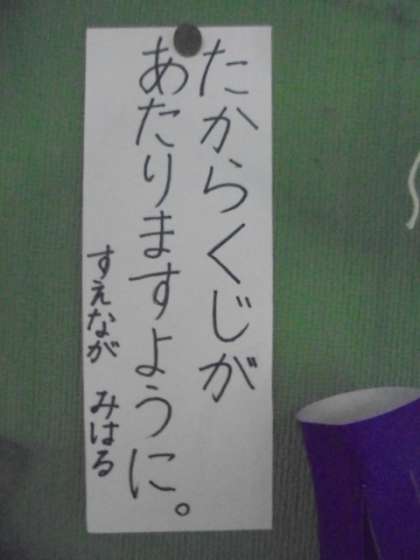 たからくじが
あたりますように。
すえなが　みはる